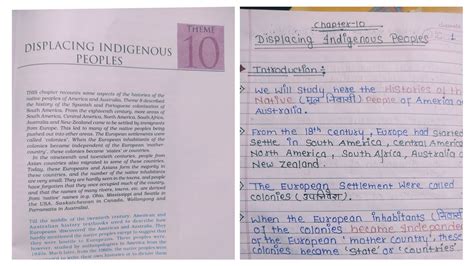 THEME
10
DISPLACING INDIGENOUS
PEOPLES
THIS chapter recounts some aspects of the histories of the
native peoples of America and Australia. Theme 8 described
the history of the Spanish and Portuguese colonisation of
South America. From the eighteenth century, more areas of
South America, Central America, North America, South Africa,
Australia and New Zealand came to be settled by immigrants
from Europe. This led to many of the native peoples being
pushed out into other areas. The European settlements were
called 'colonies'. When the European inhabitants of the
colonies became independent of the European 'mother-
country', these colonies became 'states' or countries.
In the nineteenth and twentieth centuries, people from
Asian countries also migrated to some of these countries.
Today, these Europeans and Asians form the majority in
these countries, and the number of the native inhabitants
are very small. They are hardly seen in the towns, and people
have forgotten that they once occupied much of the country,
and that the names of many rivers, towns, etc. are derived
from 'native' names (e.g. Ohio, Mississippi and Seattle in
the USA, Saskatchewan in Canada, Wollongong and
Parramatta in Australia).
Till the middle of the twentieth century, American and
Australian history textbooks used to describe how
Europeans 'discovered' the Americas and Australia. They
hardly mentioned the native peoples except to suggest that
they were hostile to Europeans. These peoples
were, however, studied by anthropologists in America from the
1840s. Much later, from the 1960s, the native peoples were
Chapter-10
Displacing Indigenous Peoples
1
Introduction:
We will study here the Histories of th
Native (मूल निवासी) People of America a
Australia.
From the 18th century, Europe had started
settle in South America, Central Americ
North America, South Africa, Australia a
New Zealand.
The European Settlement were Called
colonies (उपनिवेश).
When the European inhabitants
of the colonies became independen
of the European 'mother country', these
colonies became 'State' or 'countries'